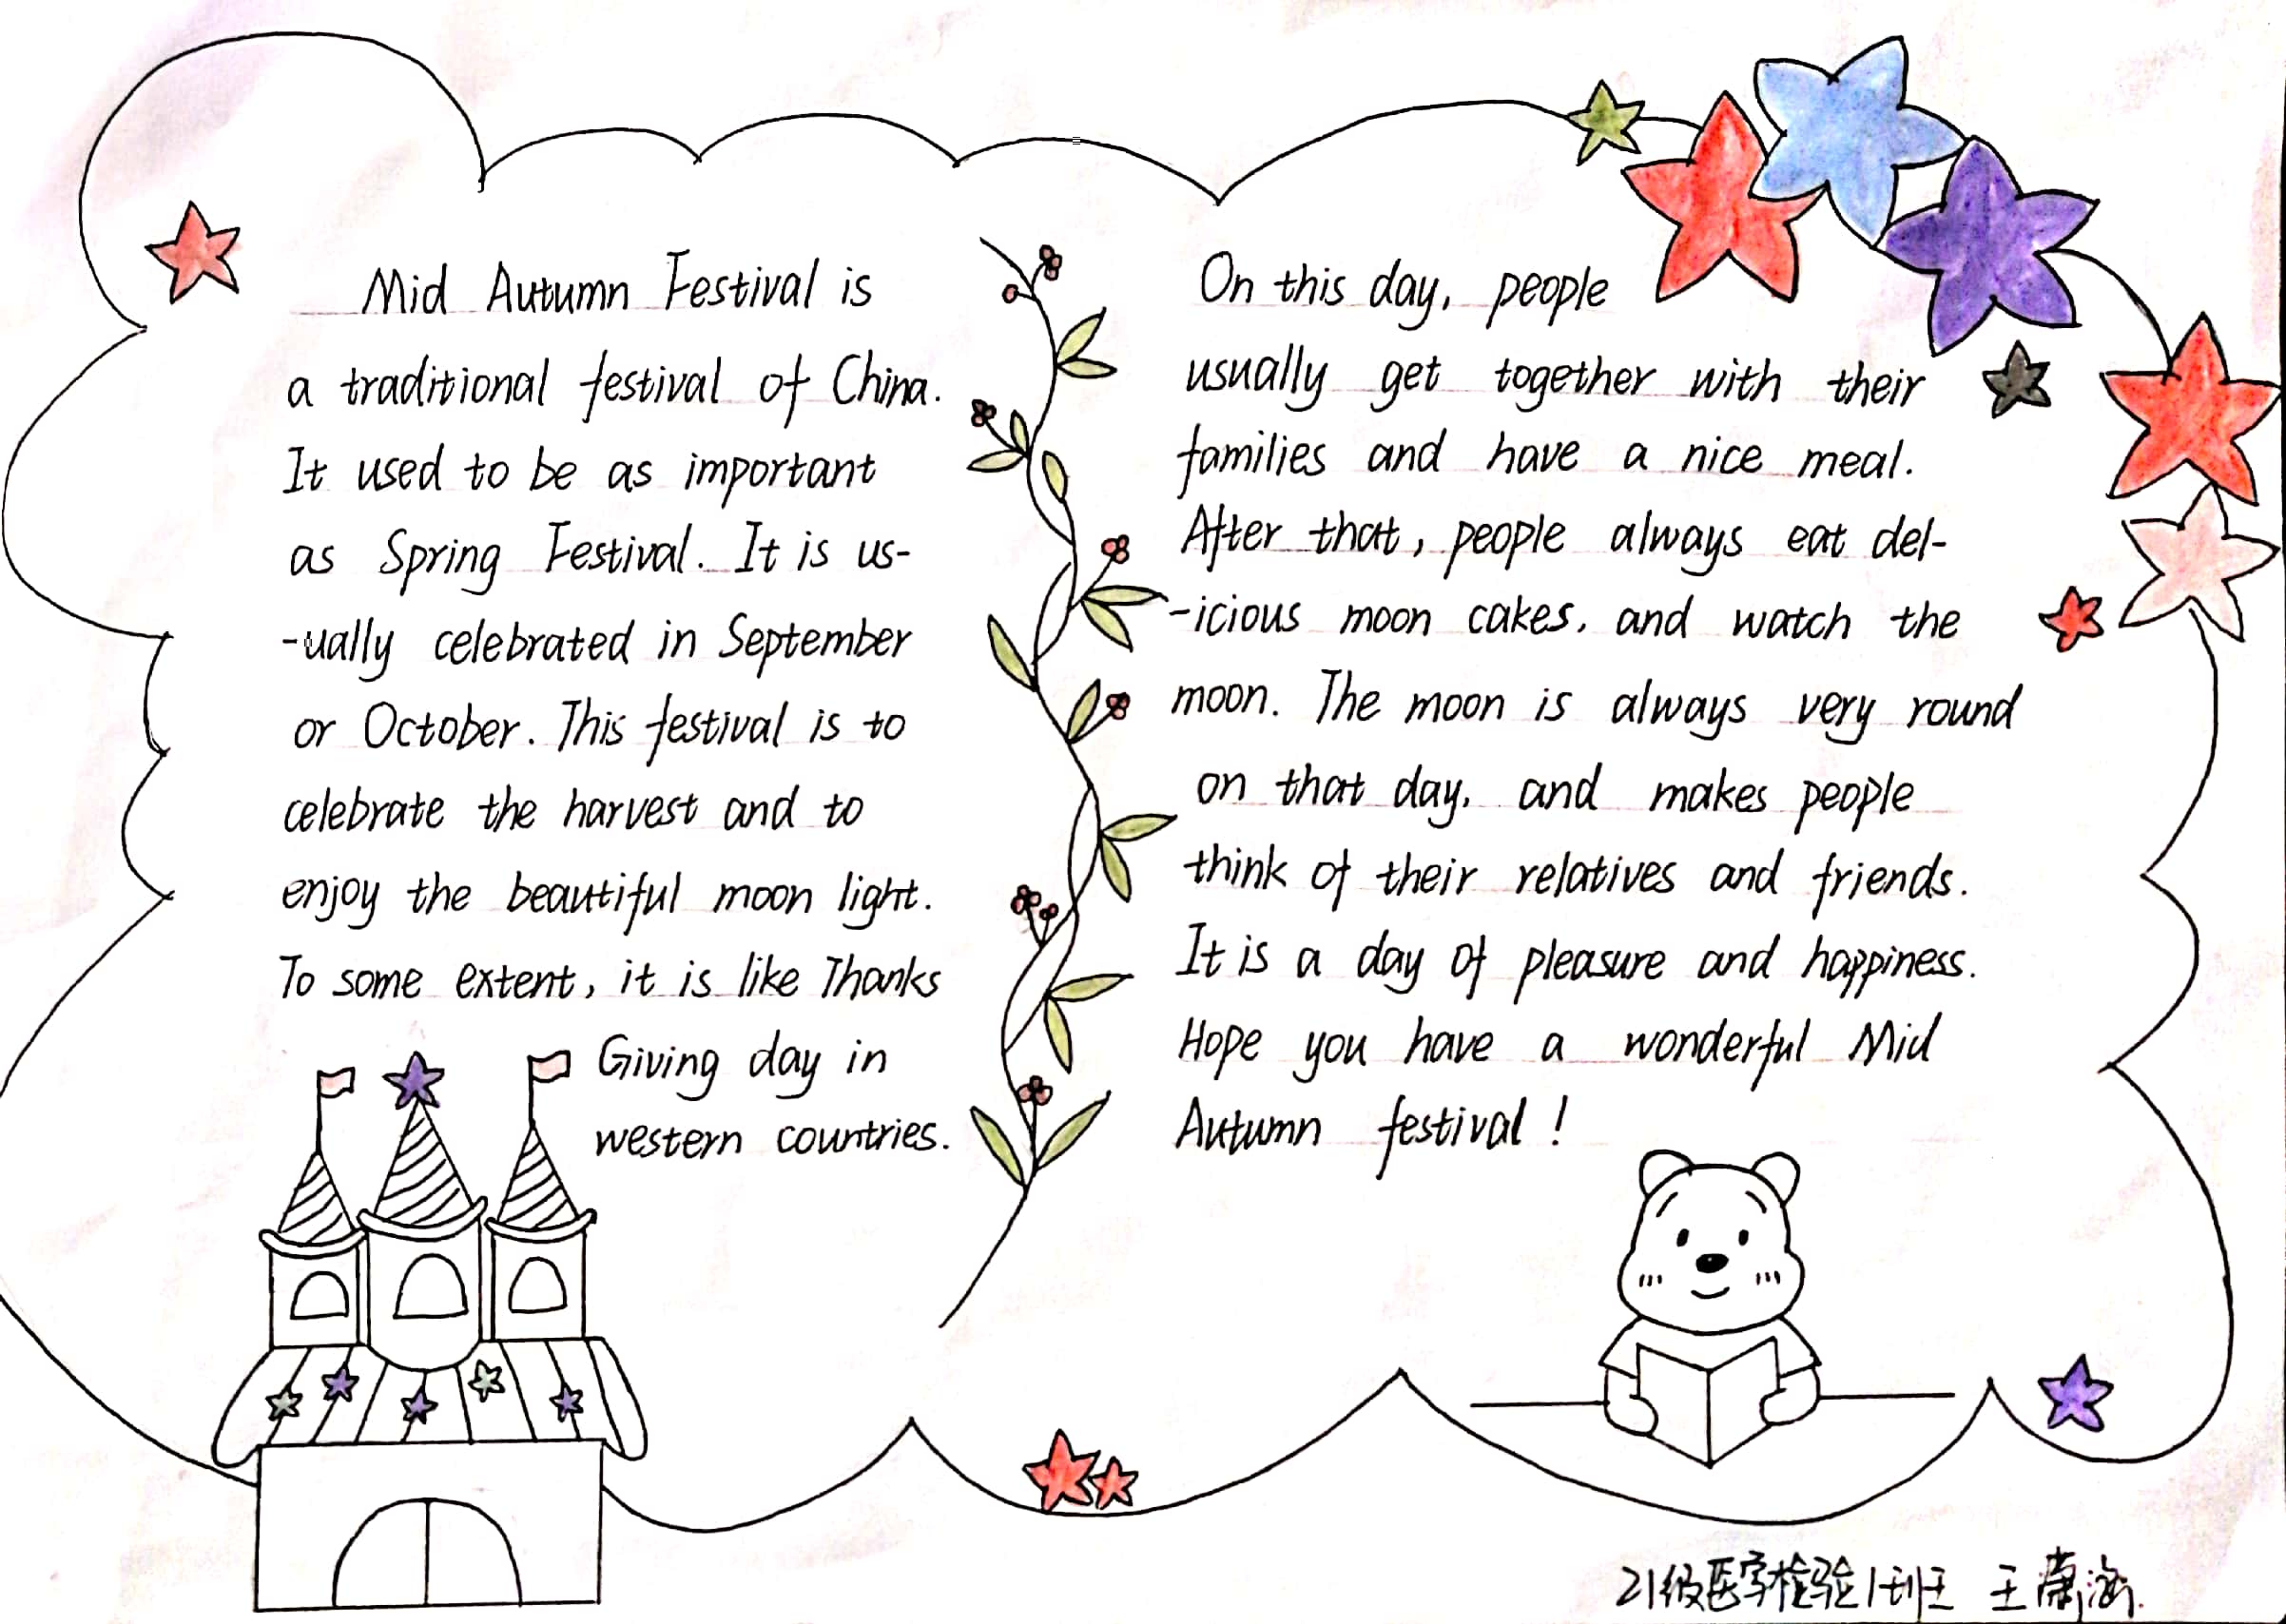 Mid Autumn Festival is
a traditional festival of China.
It used to be as important
as Spring Festival. It is us-
-ually celebrated in September
or October. This festival is to
celebrate the harvest and to
enjoy the beautiful moon light.
To some extent, it is like Thanks
Giving day in
western countries.
On this day, people
usually get together with their
families and have a nice meal.
After that, people always eat del-
-icious moon cakes, and watch the
moon. The moon is always very round
on that day, and makes people
think of their relatives and friends.
It is a day of pleasure and happiness.
Hope you have a wonderful Mid
Autumn festival!
21级医学检验1班 王潇涵